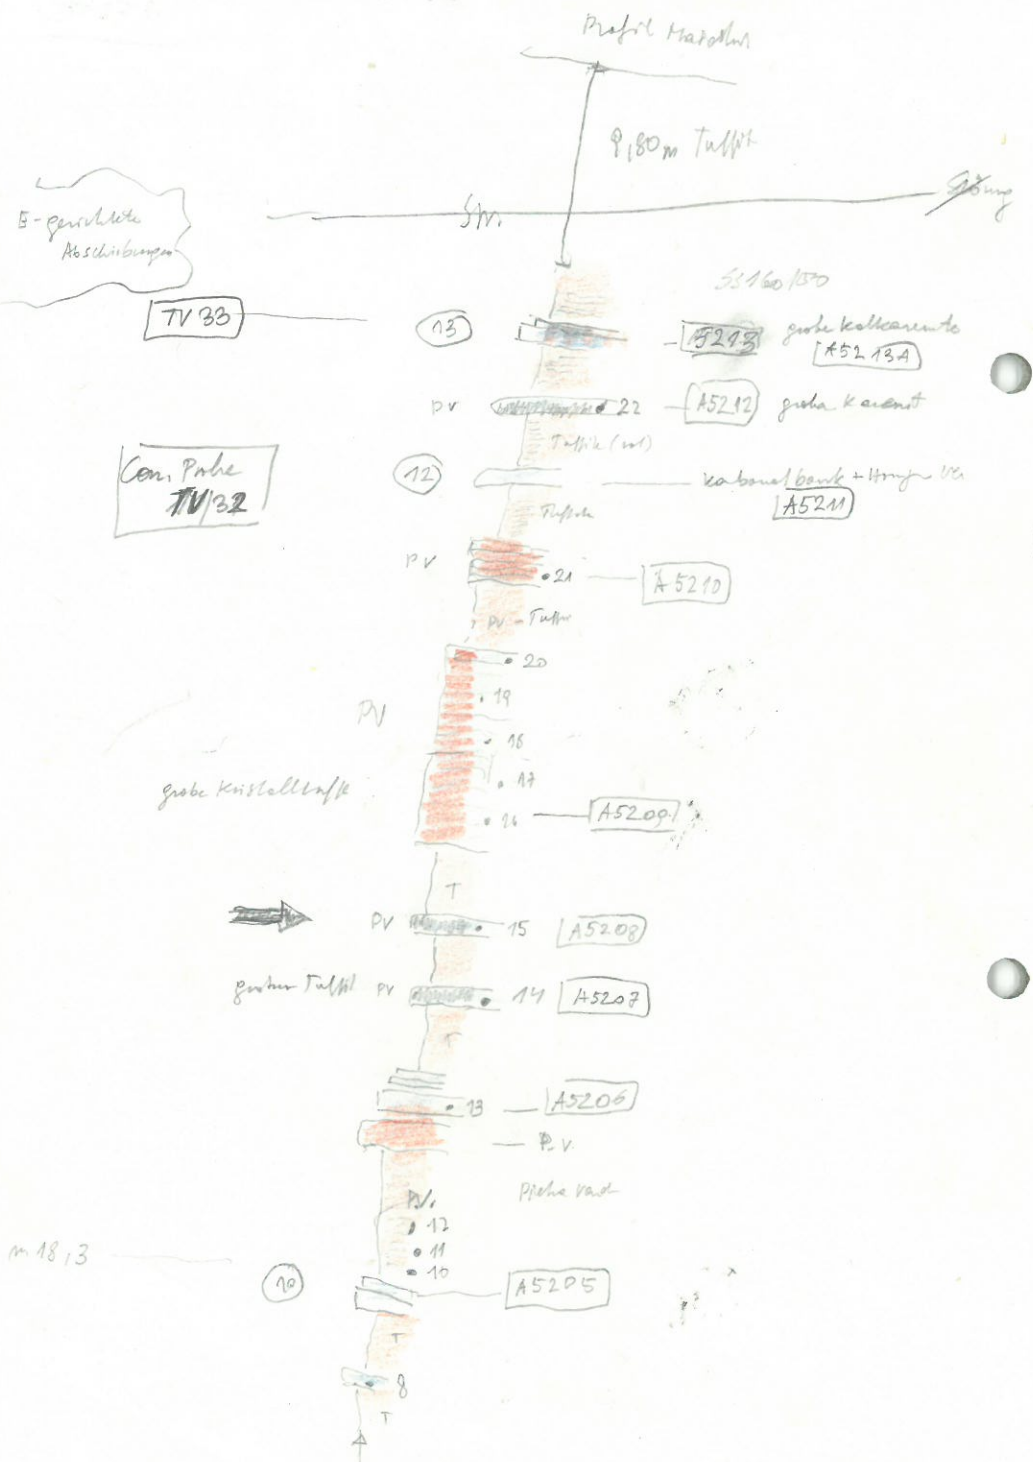 Profil
9,80m Tuffit
Störung
Stö.
E-gerichtete
Abschiebungen
SS160/50
TV33
13
5213
grobe Kalkarenite
A5213A
PV
22
A5212
grober Karenit
Tuffite (rot)
Con. Probe
TV/32
12
Karbonatbank +
A5211
Tuffite
PV
21
A5210
PV - Tuffite
20
19
PV
18
17
grobe Kristalltuffe
16
A5209
T
PV
15
A5208
grober Tuffit
PV
14
A5207
T
13
A5206
P.V.
PV.
12
m 18,3
11
10
10
A5205
T
8
T